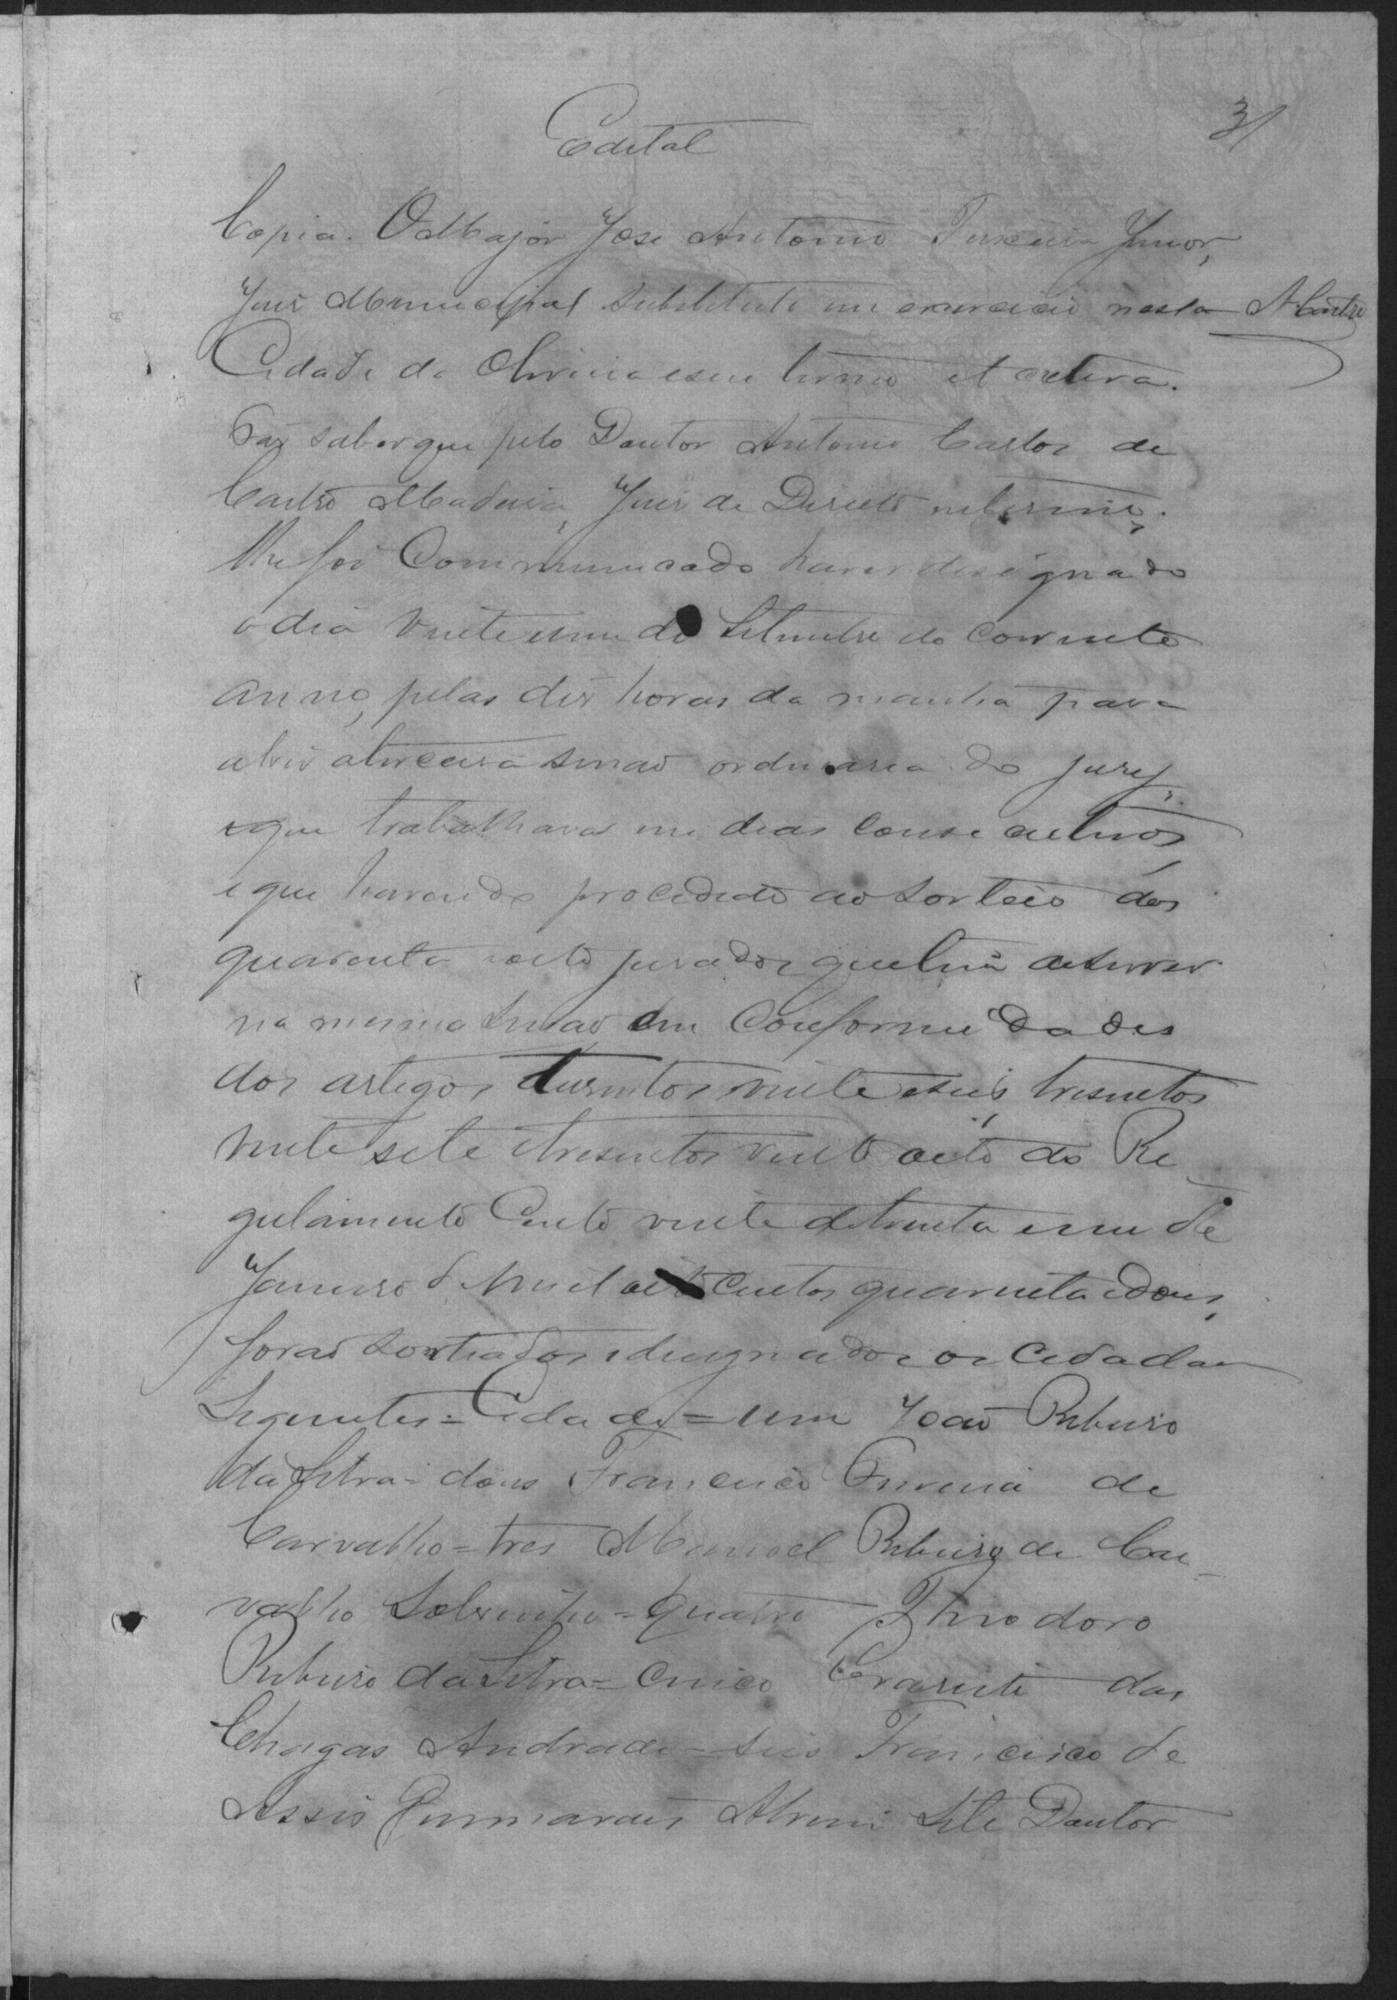 31
Edital
Copia. O Major José Antonio Teixeira Junior,
Juis Municipal substituto em exercicio nesta
A Castro
Cidade da Oliveira e seu termo et cetera.
Faz saber que pelo Doutor Antonio Carlos de
Castro Madeira, Juis de Direito interino,
lhe foi Communicado haver designado
o dia vinte e um de Setembro do corrente
anno, pelas dez horas da manhã para
abrir a terceira sessão ordinaria do jury,
e que trabalhará em dias consecutivos
e que havendo procedido ao sorteio dos
quarenta e oito jurados que tem de servir
na mesma sessão em Conformidades
dos artigos tresentos vinte e seis tresentos
vinte sete e tresentos vinte oito do Re
gulamento Cento vinte de trinta e um de
Janeiro de mil oito centos quarenta e dous,
forão sorteados e designados os cidadãos
Seguintes = Cidade = um João Ribeiro
da Silva = dous Francisco Ferreira de
Carvalho = tres Manoel Ribeiro de Car
valho Sobrinho = quatro Theodoro
Ribeiro da Silva = cinco das
Chagas Andrade = seis Francisco de
Assis Guimarães Sete Doutor